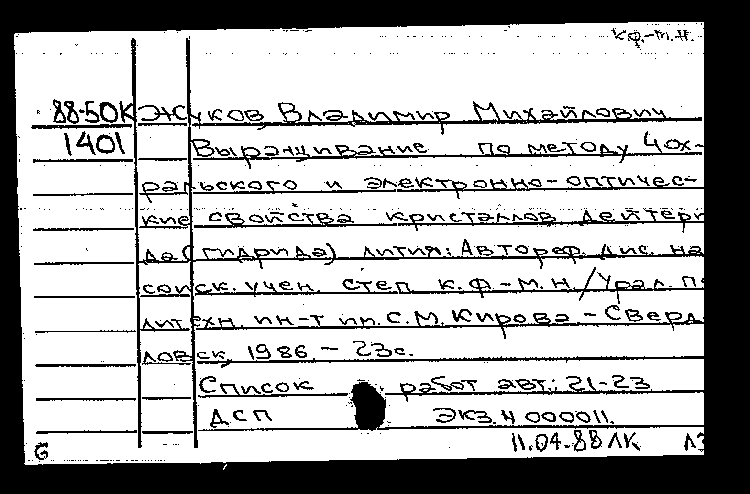 К.ф.-м.н.
88-50К Жуков, Владимир Михайлович
1401 Выращивание по методу Чох-
ральского и электронно-оптичес-
кие свойства кристаллов дейтери
да(гидрида) лития: Автореф. дис. на
соиск. учен. степ к.ф.-м.н./Урал. по
литехн. ин-т им. С.М. Кирова - Сверд
ловск, 1986. - 23с.
Список работ авт.: 21-23
ДСП ЭКЗ.N 000011.
G 11.04.88 ЛК